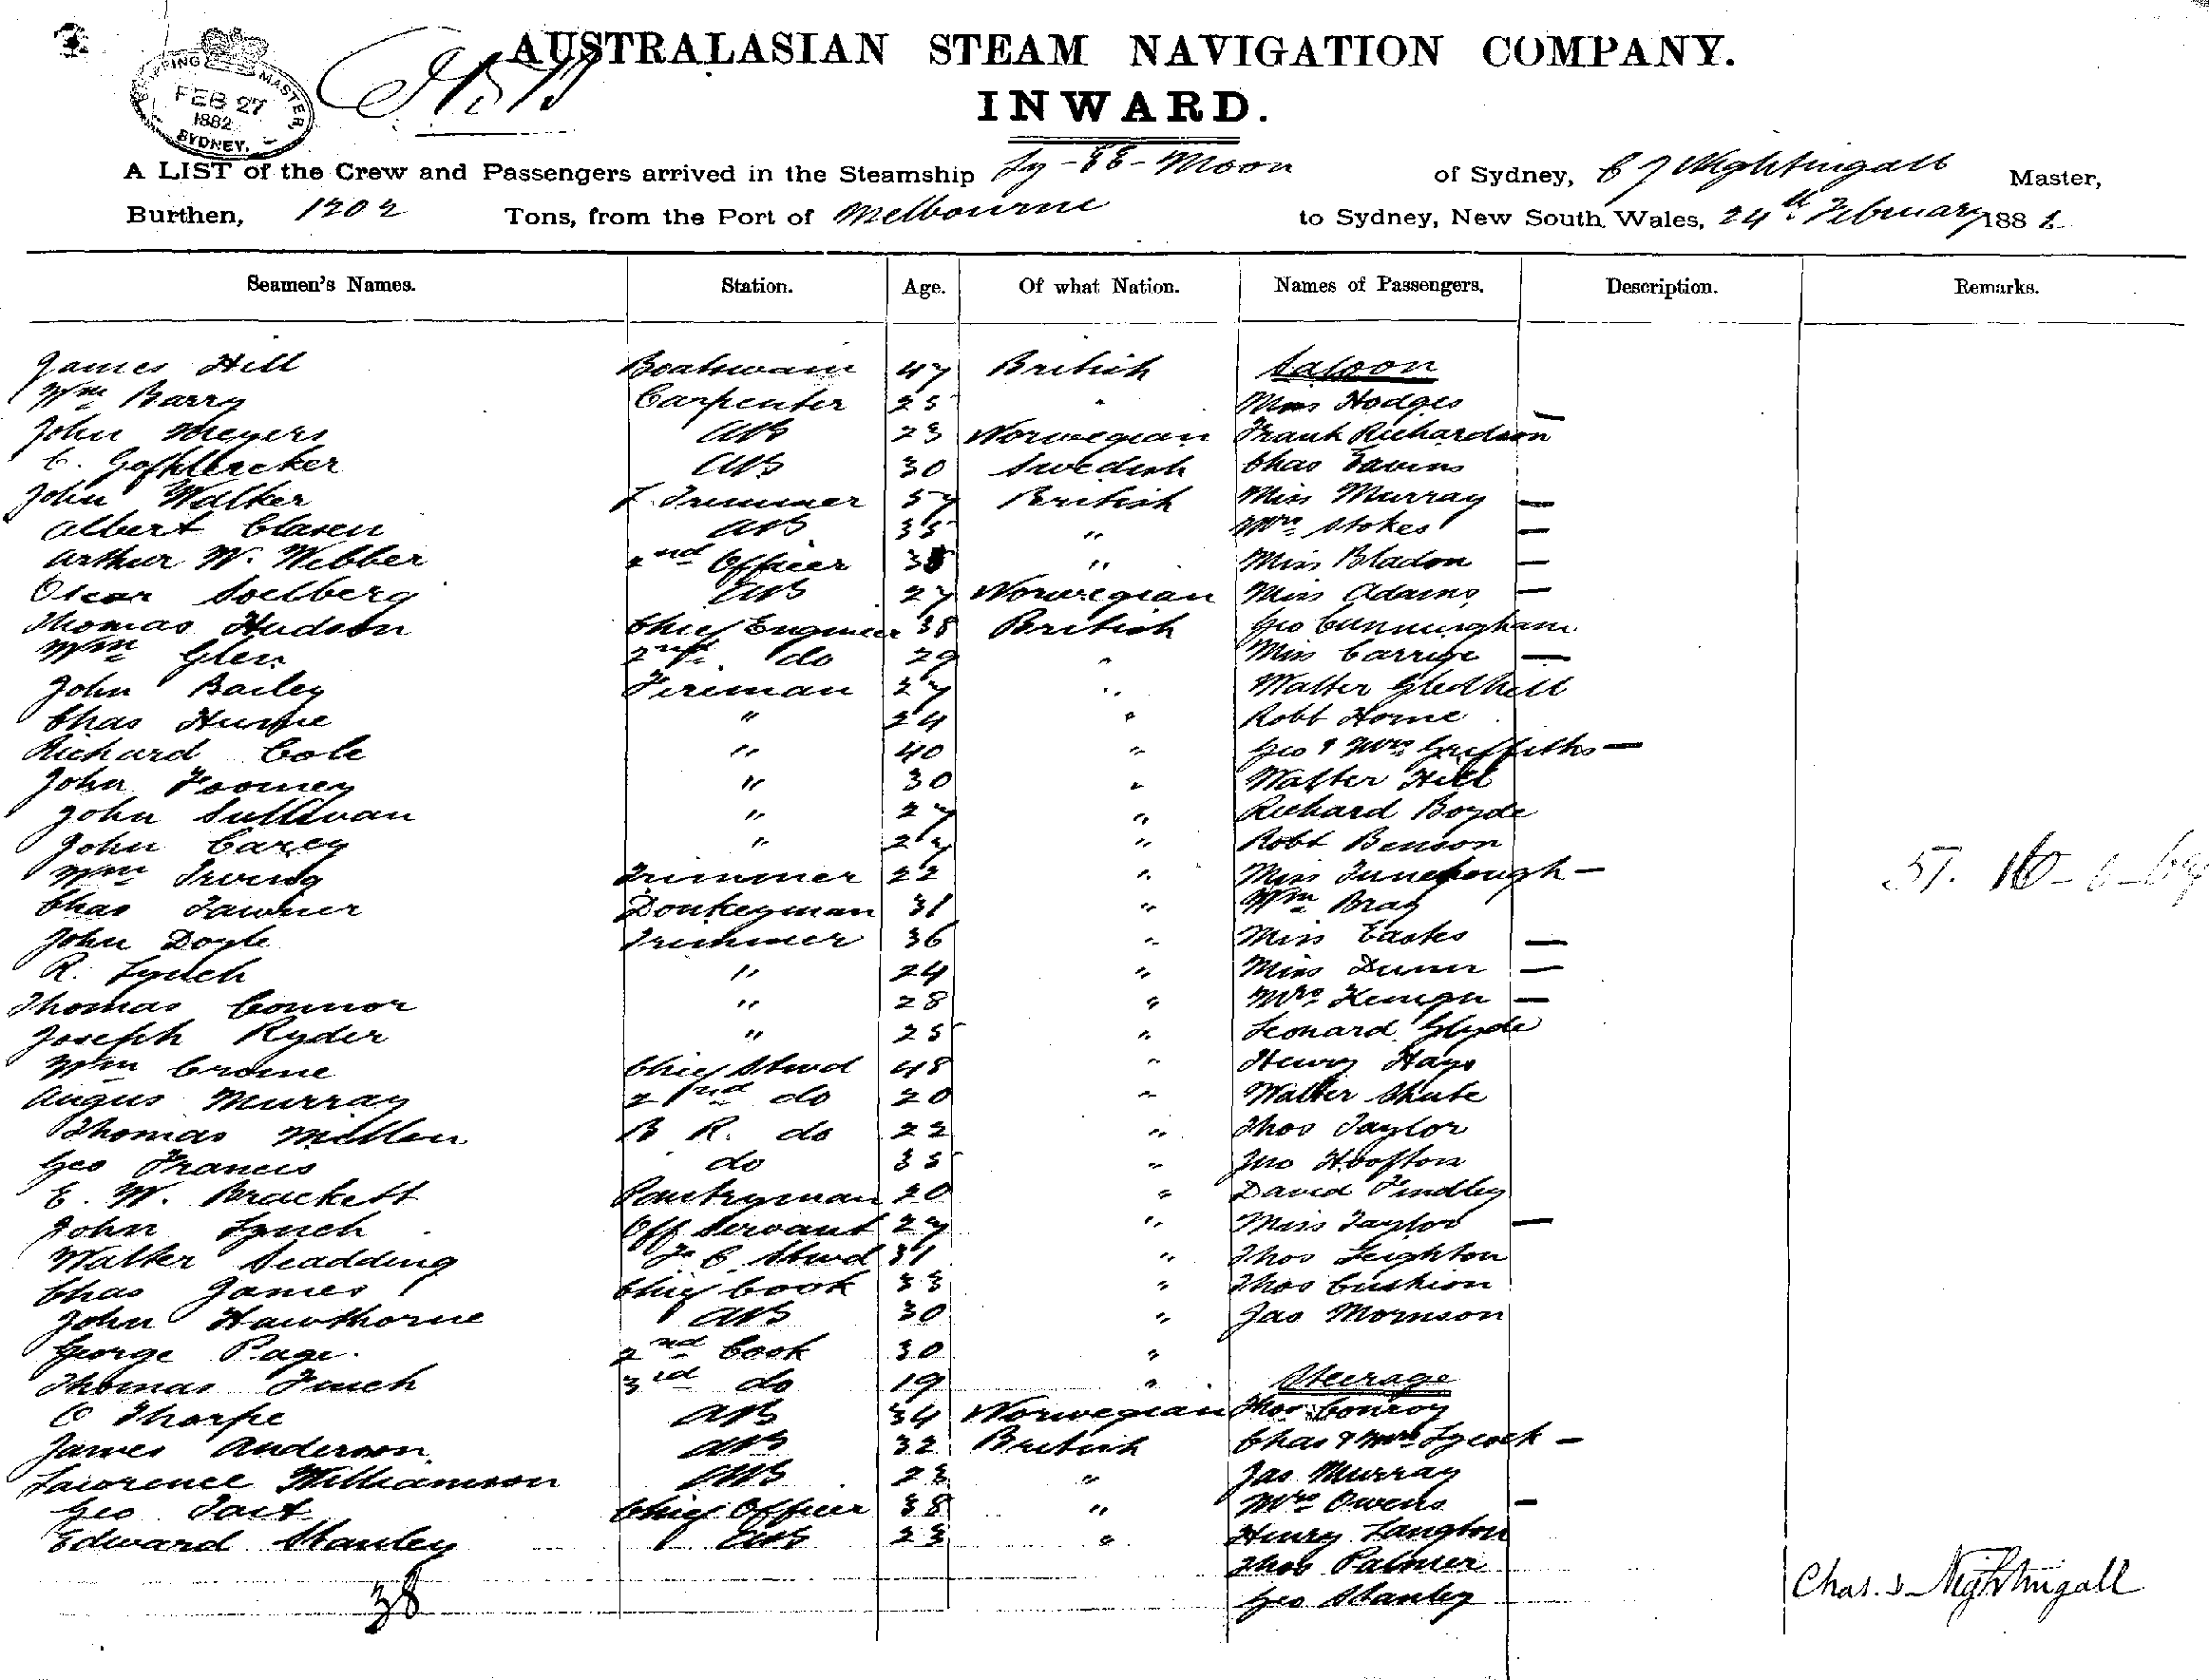 AUSTRALASIAN STEAM NAVIGATION COMPANY.
SHIPPING MASTER
FEB 27
1882
SYDNEY.
INWARD.
A LIST of the Crew and Passengers arrived in the Steamship Ly-ee-Moon of Sydney, C J Nightingall Master,
Burthen, 1202 Tons, from the Port of Melbourne to Sydney, New South Wales, 24th February 1882
Seamen's Names. Station. Age. Of what Nation. Names of Passengers. Description. Remarks.
James Hill Boatswain 47 British Saloon
Wm Barry Carpenter 25 " Miss Hodges —
John Meyers AB 23 Norwegian Frank Richardson
C. AB 30 Swedish Chas
John Walker F. Trimmer 57 British Miss Murray —
Albert Clasen AB 35 " Mrs Stokes —
Arthur W. Webber 2nd Officer 35 " Miss Bladon —
Oscar Soelberg AB 27 Norwegian Miss Adams —
Thomas Hudson Chief Engineer 38 British Geo Cunningham
Wm Glen 2nd do 29 " Miss Carrige —
John Bailey Fireman 27 " Walter Gledhill
Chas Hume " 24 " Robt Horne
Richard Cole " 40 " Geo & Mrs Griffiths —
John Toomey " 30 " Walter Hill
John Sullivan " 27 " Richard Boyde
John Carey " 27 " Robt Benson
Wm Irving Trimmer 22 " Miss —
Chas Donkeyman 31 " Wm Bray
John Doyle Trimmer 36 " Miss Eastes —
R. Lynch " 24 " Miss Dunn —
Thomas Connor " 28 " Mrs —
Joseph Ryder " 25 " Leonard Glyde
Wm Crome Chief Stwd 48 " Henry Hays
Angus Murray 2nd do 20 " Walter Shute
Thomas Mellon B R. do 22 " Thos Taylor
Geo Francis do 35 " Jno Hoofton
E. W. Brackett Pantryman 20 " David Findley
John Lynch Off Servant 27 " Miss Taylor —
Walter Scadding F. C. Stwd 31 " Thos Leighton
Chas James Chief Cook 33 " Thos Cushion
John Hawthorne AB 30 " Jas Morrison
George Page 2nd Cook 30 "
Thomas Finch 3rd do 19 " Steerage
O Thorpe AB 34 Norwegian Thos Conroy
James Anderson AB 32 British Chas & Mrs Lycock —
Lawrence Williamson AB 23 " Jas Murray
Geo Tait Chief Officer 38 " Mrs Owens —
Edward Stanley AB 23 " Henry Langton
Thos Palmer
38 Geo Stanley
Chas. J. Nightingall